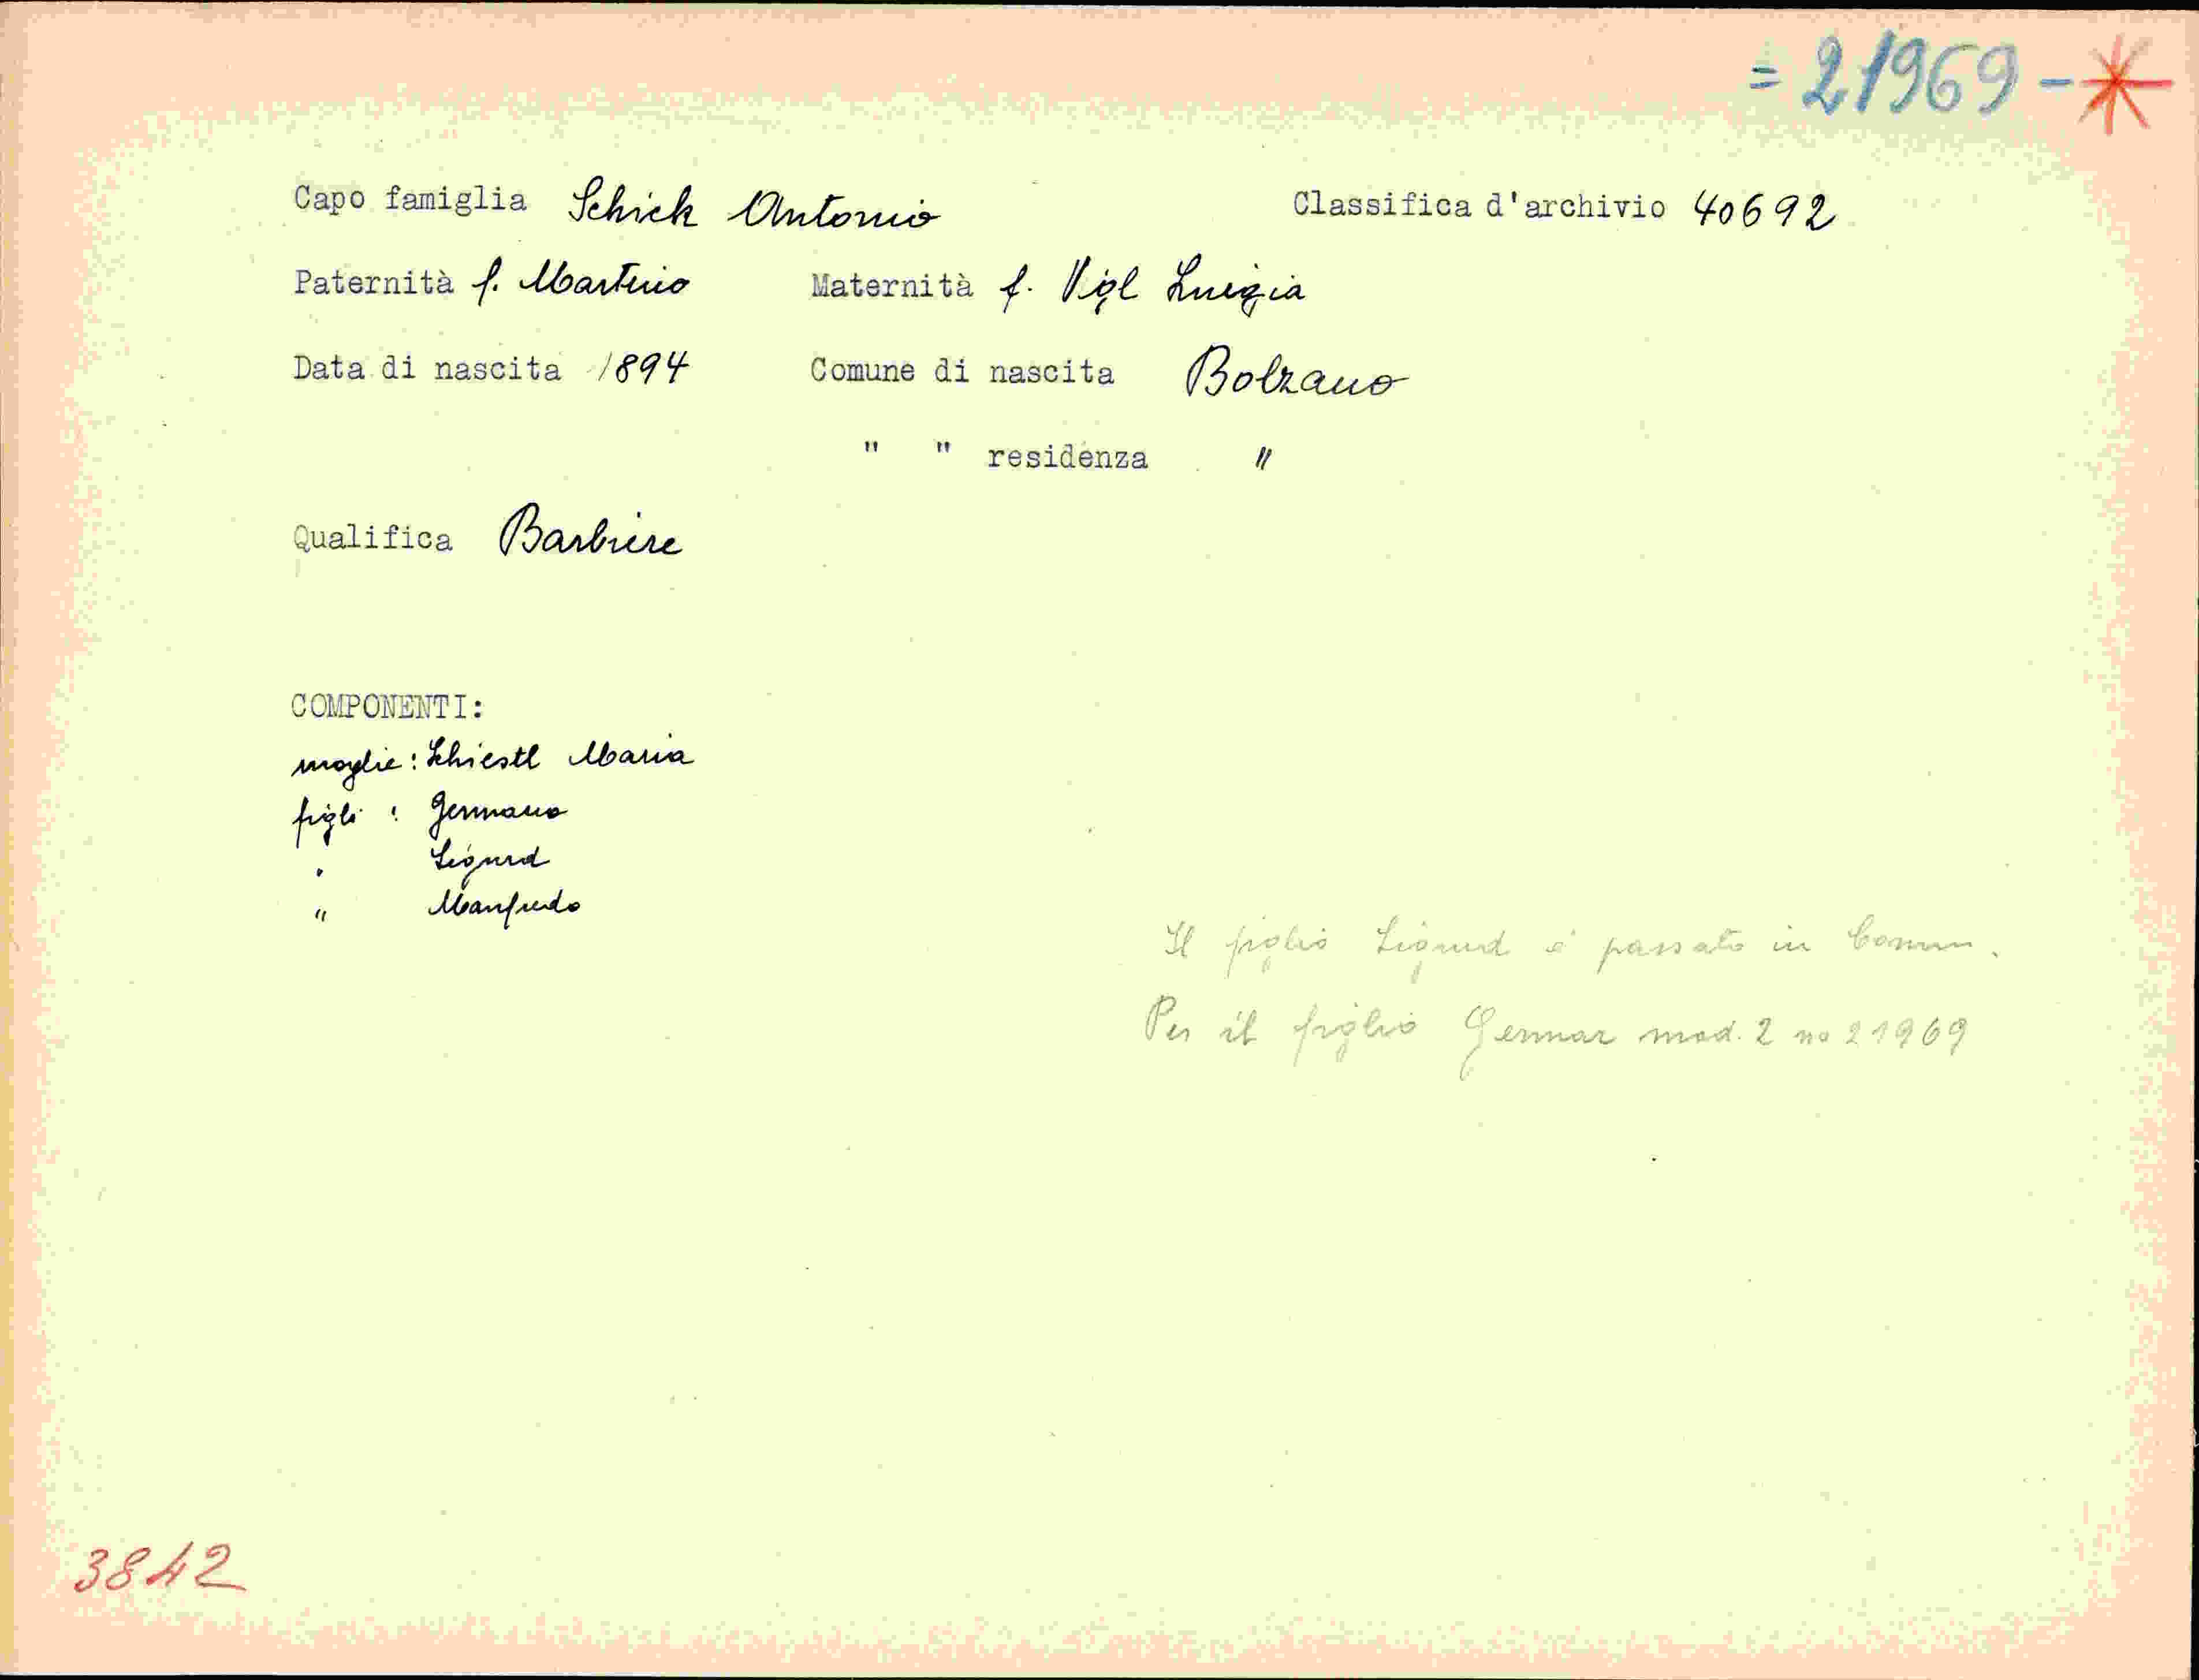 = 21969 - *
Capo famiglia Schick Antonio Classifica d'archivio 40692
Paternità f. Martino Maternità f. Vigl Luigia
Data di nascita 1894 Comune di nascita Bolzano
" " residenza "
Qualifica Barbiere
COMPONENTI:
moglie: Schiestl Maria
figli : Germano
" Sigurd
" Manfredo
Il figlio Sigurd è passato in Comun.
Per il figlio German mod. 2 no 21969
3842